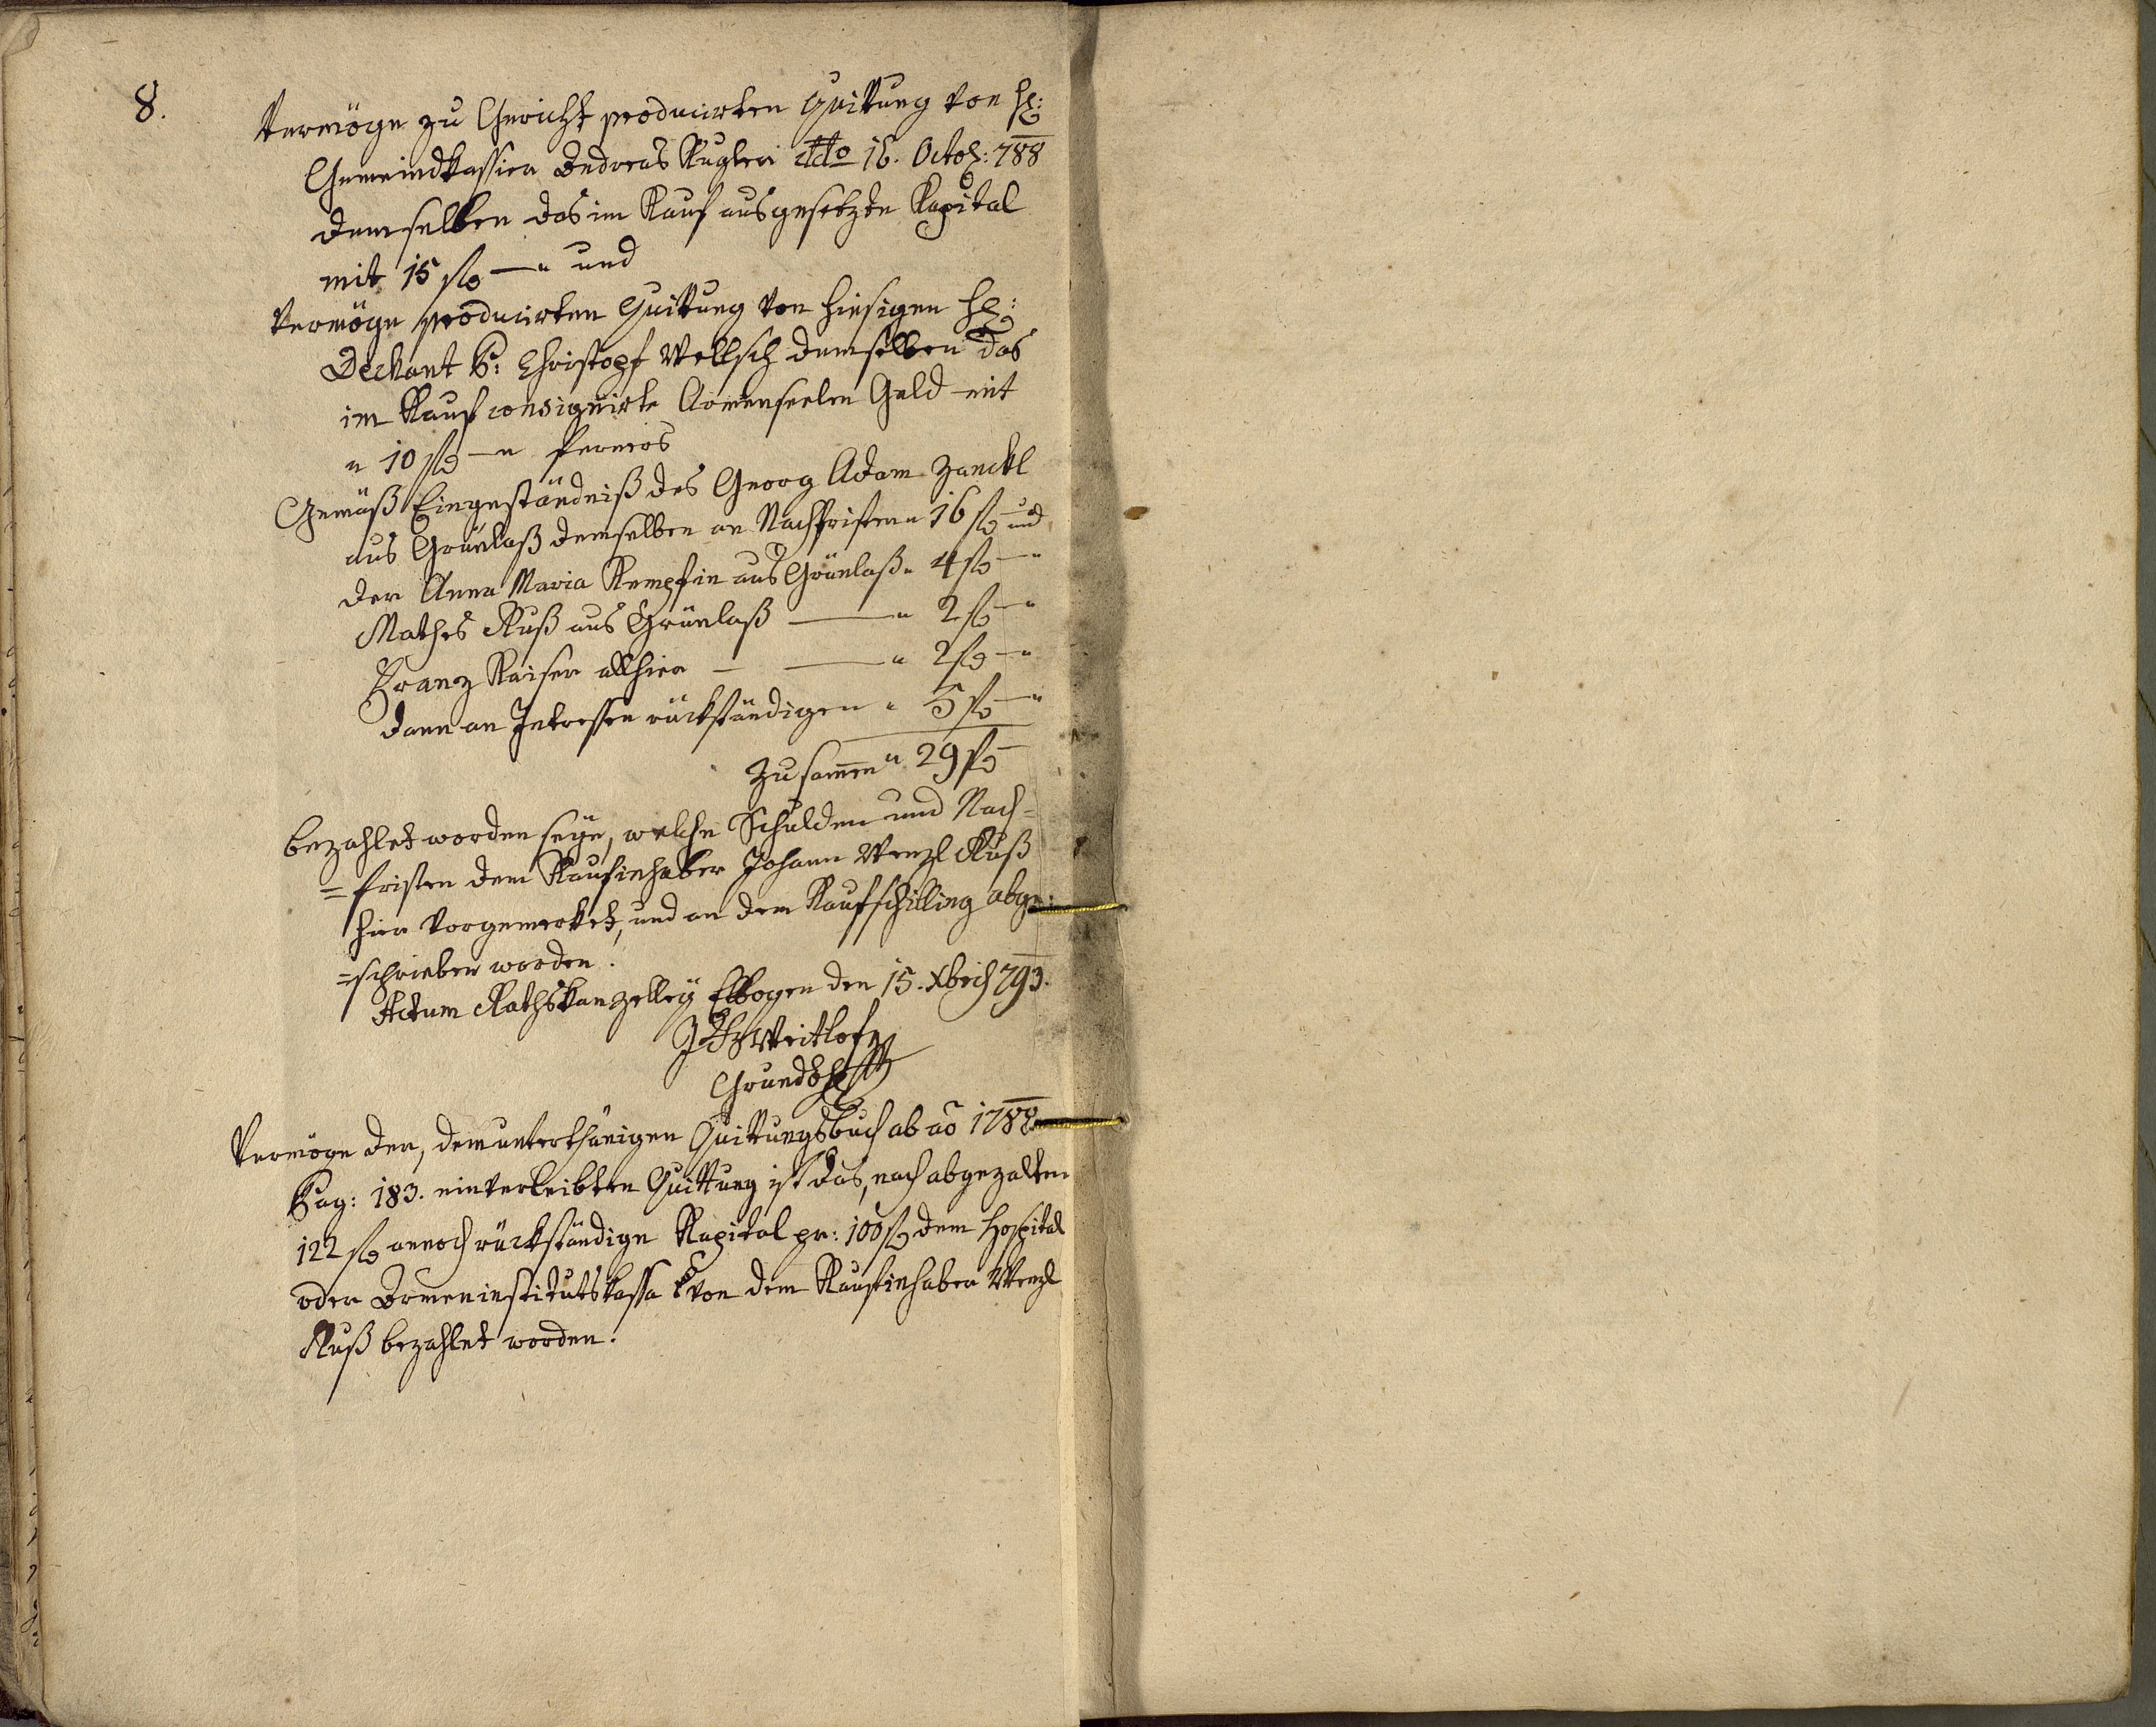 8.
Vermöge zu Gericht producirten Quittung von H:
Gemeindkassier Andreas Kugleri ddto 16. Octob: 788
demselben das im Kauf ausgesetzte Kapital
mit 15 fl — " und
Vermöge producirten Quittung von hiesigen H:
Dechant P: Christoph Wellisch demselben das
im Kauf consignirte Armenseelen Geld mit
" 10 fl — " Ferners
Gemäß Eingeständniß des Georg Adam Zanckl
aus Grünlaß demselben an Nachfristen " 16 fl und
der Anna Maria Kempfin aus Grünlaß " 4 fl — "
Mathes Ruß aus Grünlaß — " 2 fl — "
Franz Kaiser allhier — — " 2 fl — "
dann an Intressen rückständigen " 5 fl — "
Zusamen " 29 fl —
bezahlet worden seÿe, welche Schulden und Nach-
=fristen dem Kaufinhaber Johann Wenzl Ruß
hier vorgemerket, und an dem Kaufschilling abge:
=schrieben worden.
Actum Rathskanzelleÿ Elbogen den 15. Xbris 793.
Weitlof
Grundb
Vermöge der, dem unterthänigen Quittungsbuch ab ao 1788
Pag: 183. einverleibten Quittung ist das, nach abgezalten
122 fl annoch rückständige Kapital pr: 100 fl dem Hospital
oder Armeninstitutskassa von dem Kaufinhaber Wenzl
Ruß bezahlet worden.